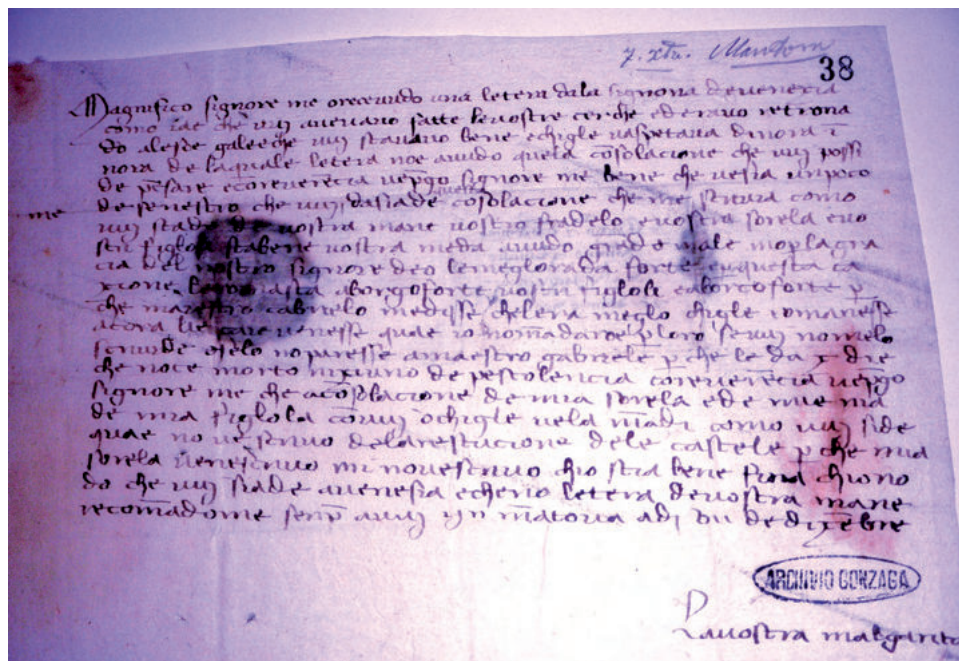 7. xbr. Mantova
38
Magnifico signore me o recevudo una letera dala signoria de venexia
como che vuy avevavo fatte le vostre cerche ed eravo retrona
do ale galee che vuy stavavo bene e chigle va spetava d inora i
nora de la quale letera no e avudo quela cōsolacione che vuy possi
de pēsare e co reverēcia ve pgo signore me bene che ve sia un poco
de senestro che vuy daside questa cōsolacione che me scriva como
me
vuy stade de vostra mane vostro fradelo e vostra sorela e vo
stri figloli stabene vostra meda avudo grāde male mo p la gra
cia del nostro signore deo le meglorada forte e questa ca
xione le romasta a borgoforte vostri figloli e a borgoforte p
che maestro gabrielo me disse che l era meglo chigle romanesse
ancora lie care venesse quae io no mādaroe p loro se vuy no me lo
scrivide e selo no paresse a maestro gabriele p che le da x die
che no ce morto niuno de pestolencia co reverēcia ve pgo
signore me che a cōsolacione de mia sorela e de mie ma
de mia figlola co vuy ochigle ne la mādi como vuy side
quae no ve scrivo de la restucione dele castele p che mia
sorela ve ne scrivo mi no ve scrivo chio stia bene fina chio no
do che vuy siade a venesia e che no letera de vostra mane
recomādome senp a vuy in mātova adi vii de dizēbre
ARCHIVIO GONZAGA
La vostra malgarita